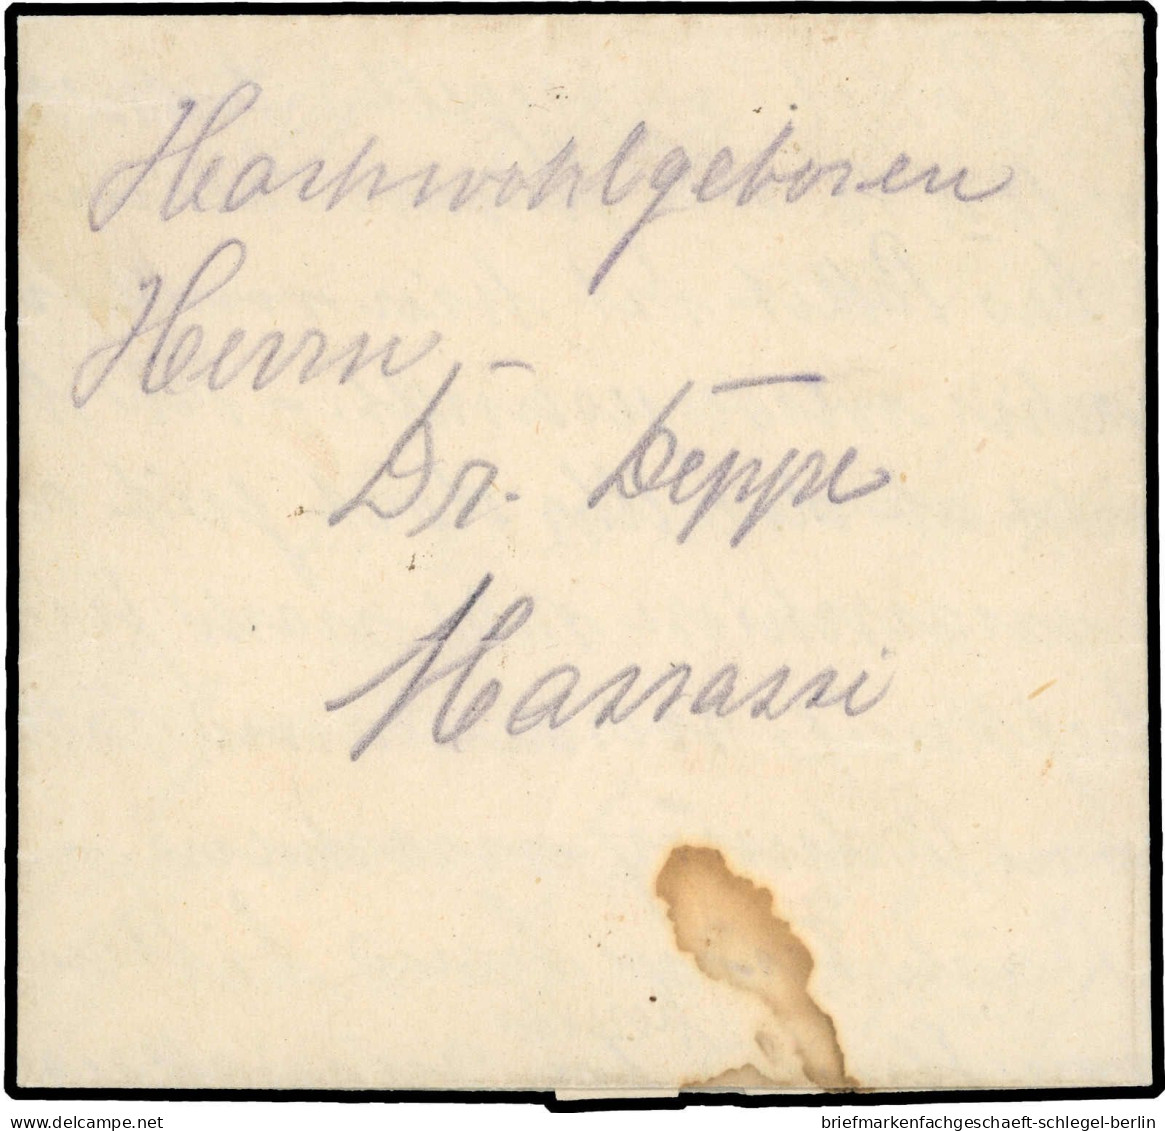 Hochwohlgeboren
Herrn
Dr. Deppe
Massassi
delcampe.net
briefmarkenfachgeschaeft-schlegel-berlin